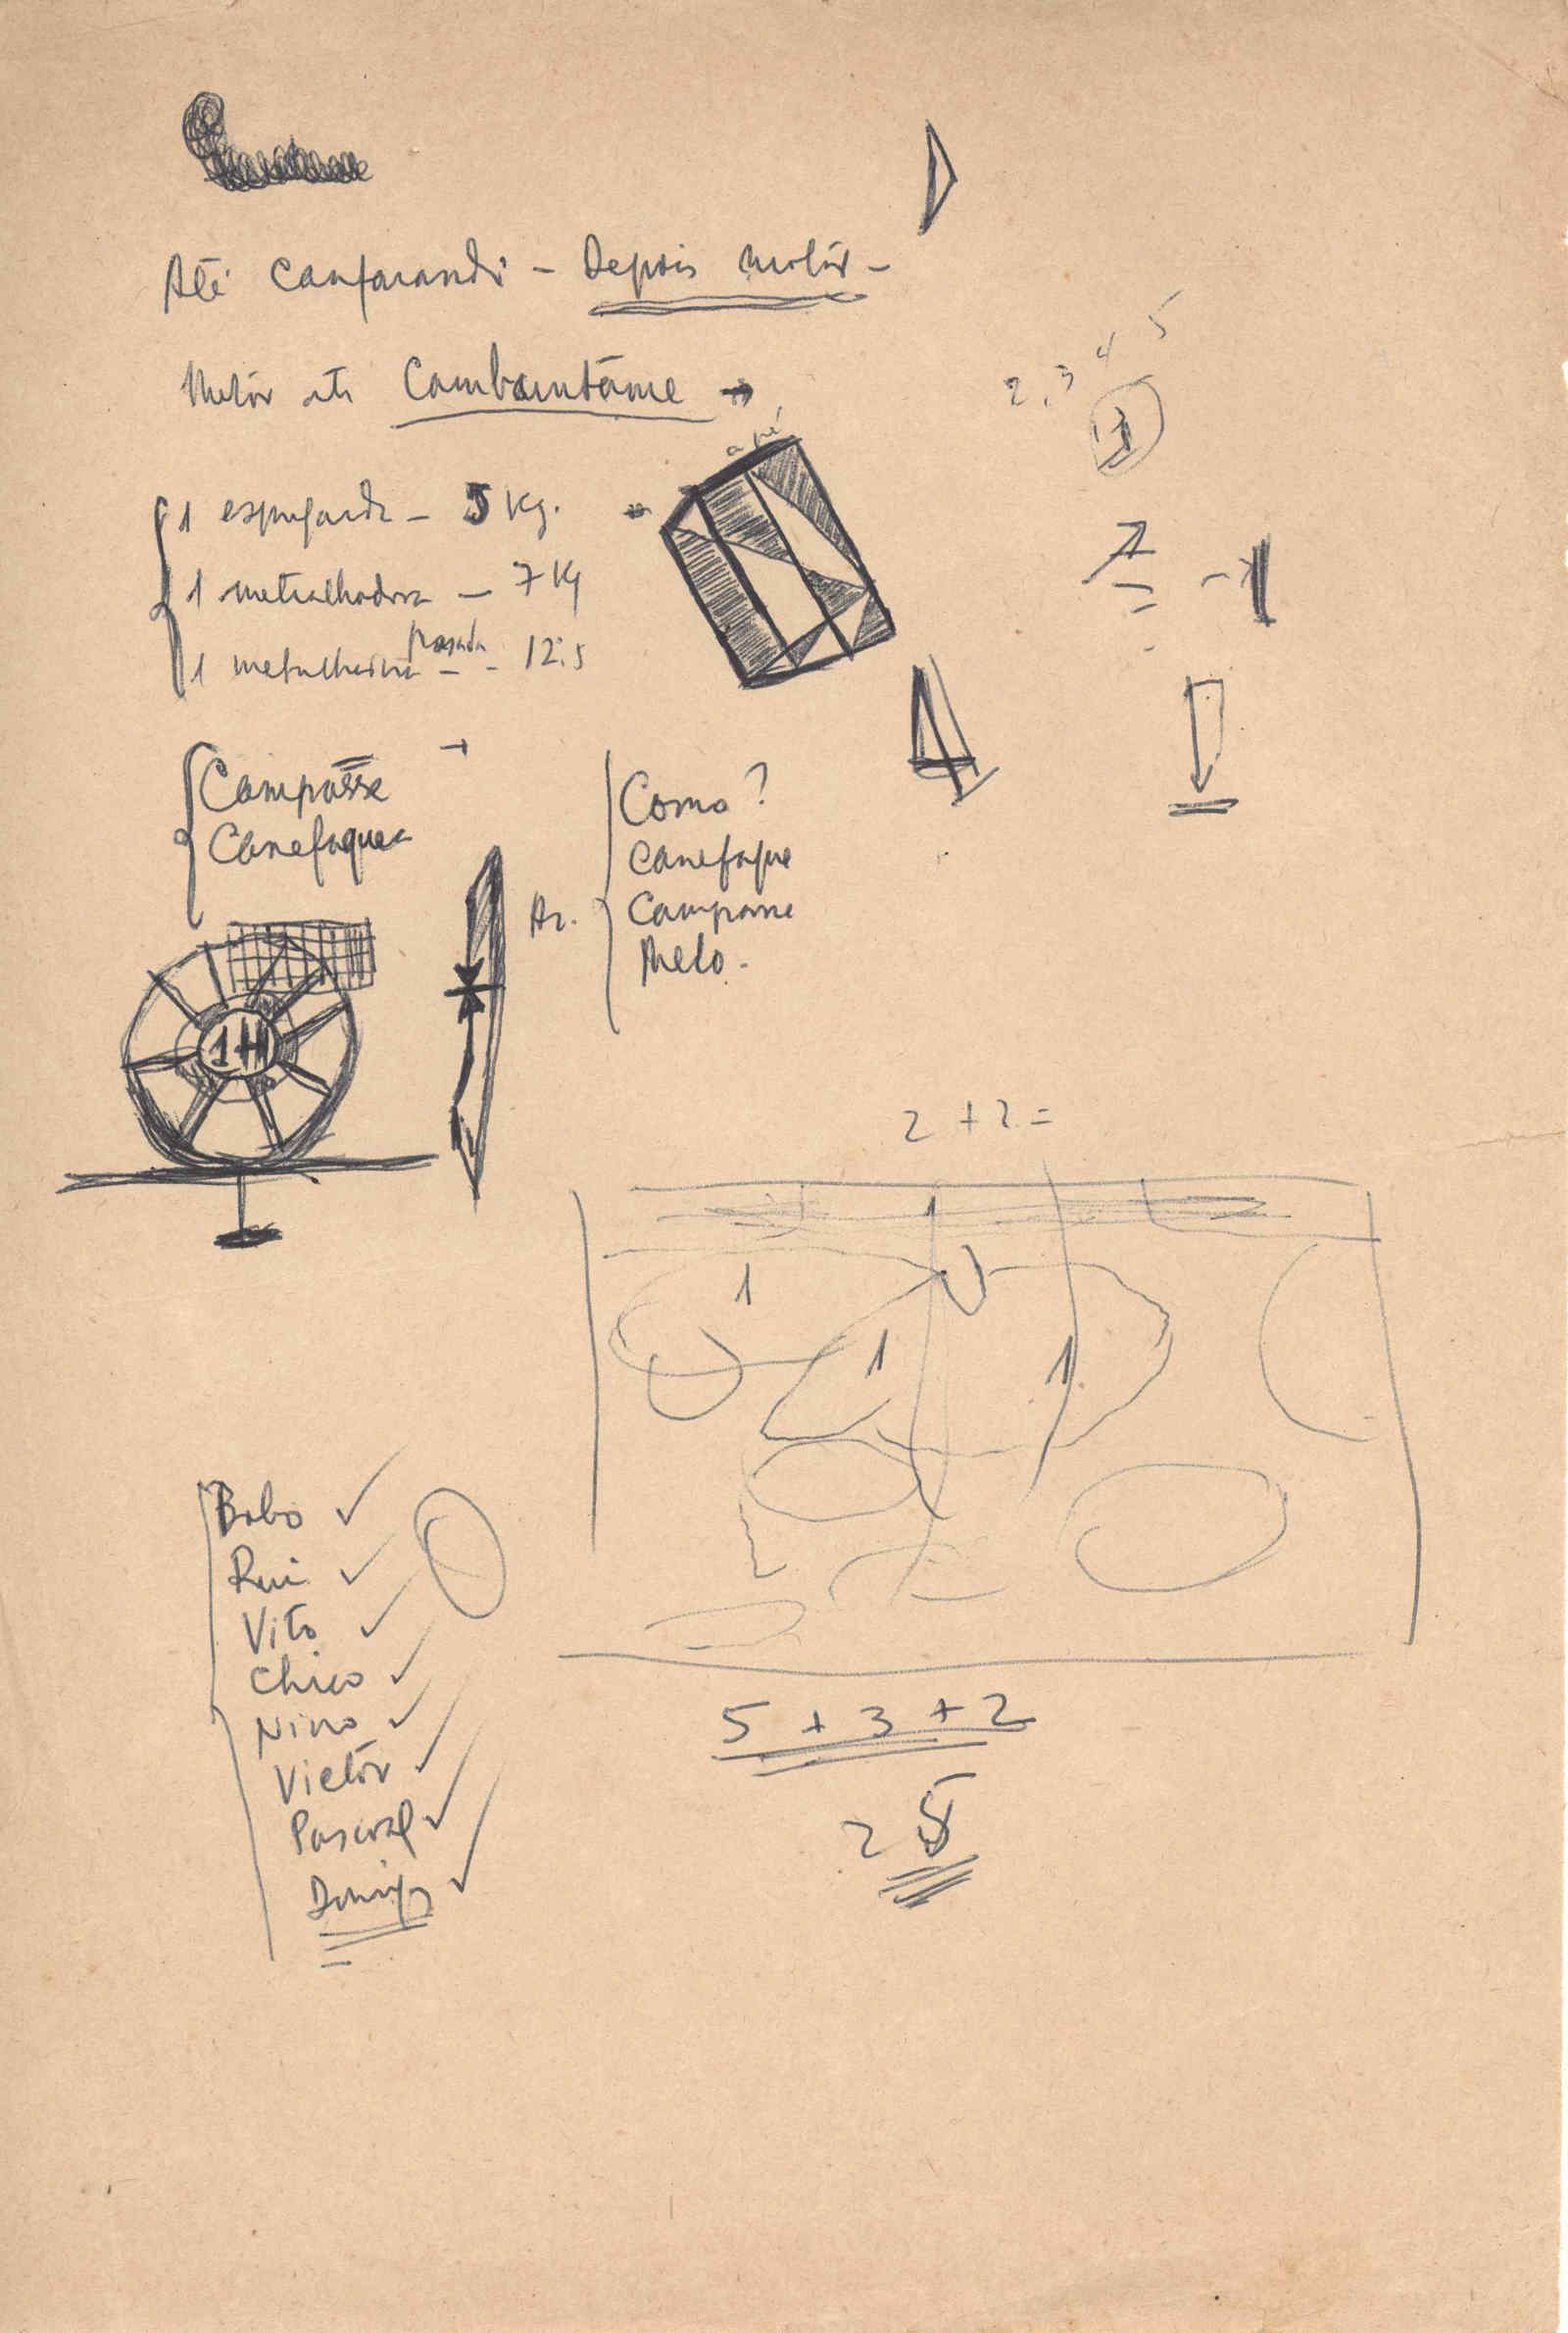 Até Canfarandi - Depois motôr -
Motôr até Cambantâme →
a pé
1 espingarda - 5 Kg.
1 metralhadora - 7 Kg
1 pesada - 12.5
2, 3 4 5
1
Campâsse
Canefaque
Como?
Canefaque
Campasse
Melo.
Az.
1H
2 + 2 =
1
1
1
1
Bobo ✓
Rui ✓
Vito ✓
Chico ✓
Nino ✓
Victôr ✓
Pascoal ✓
✓
5 + 3 + 2
2 5